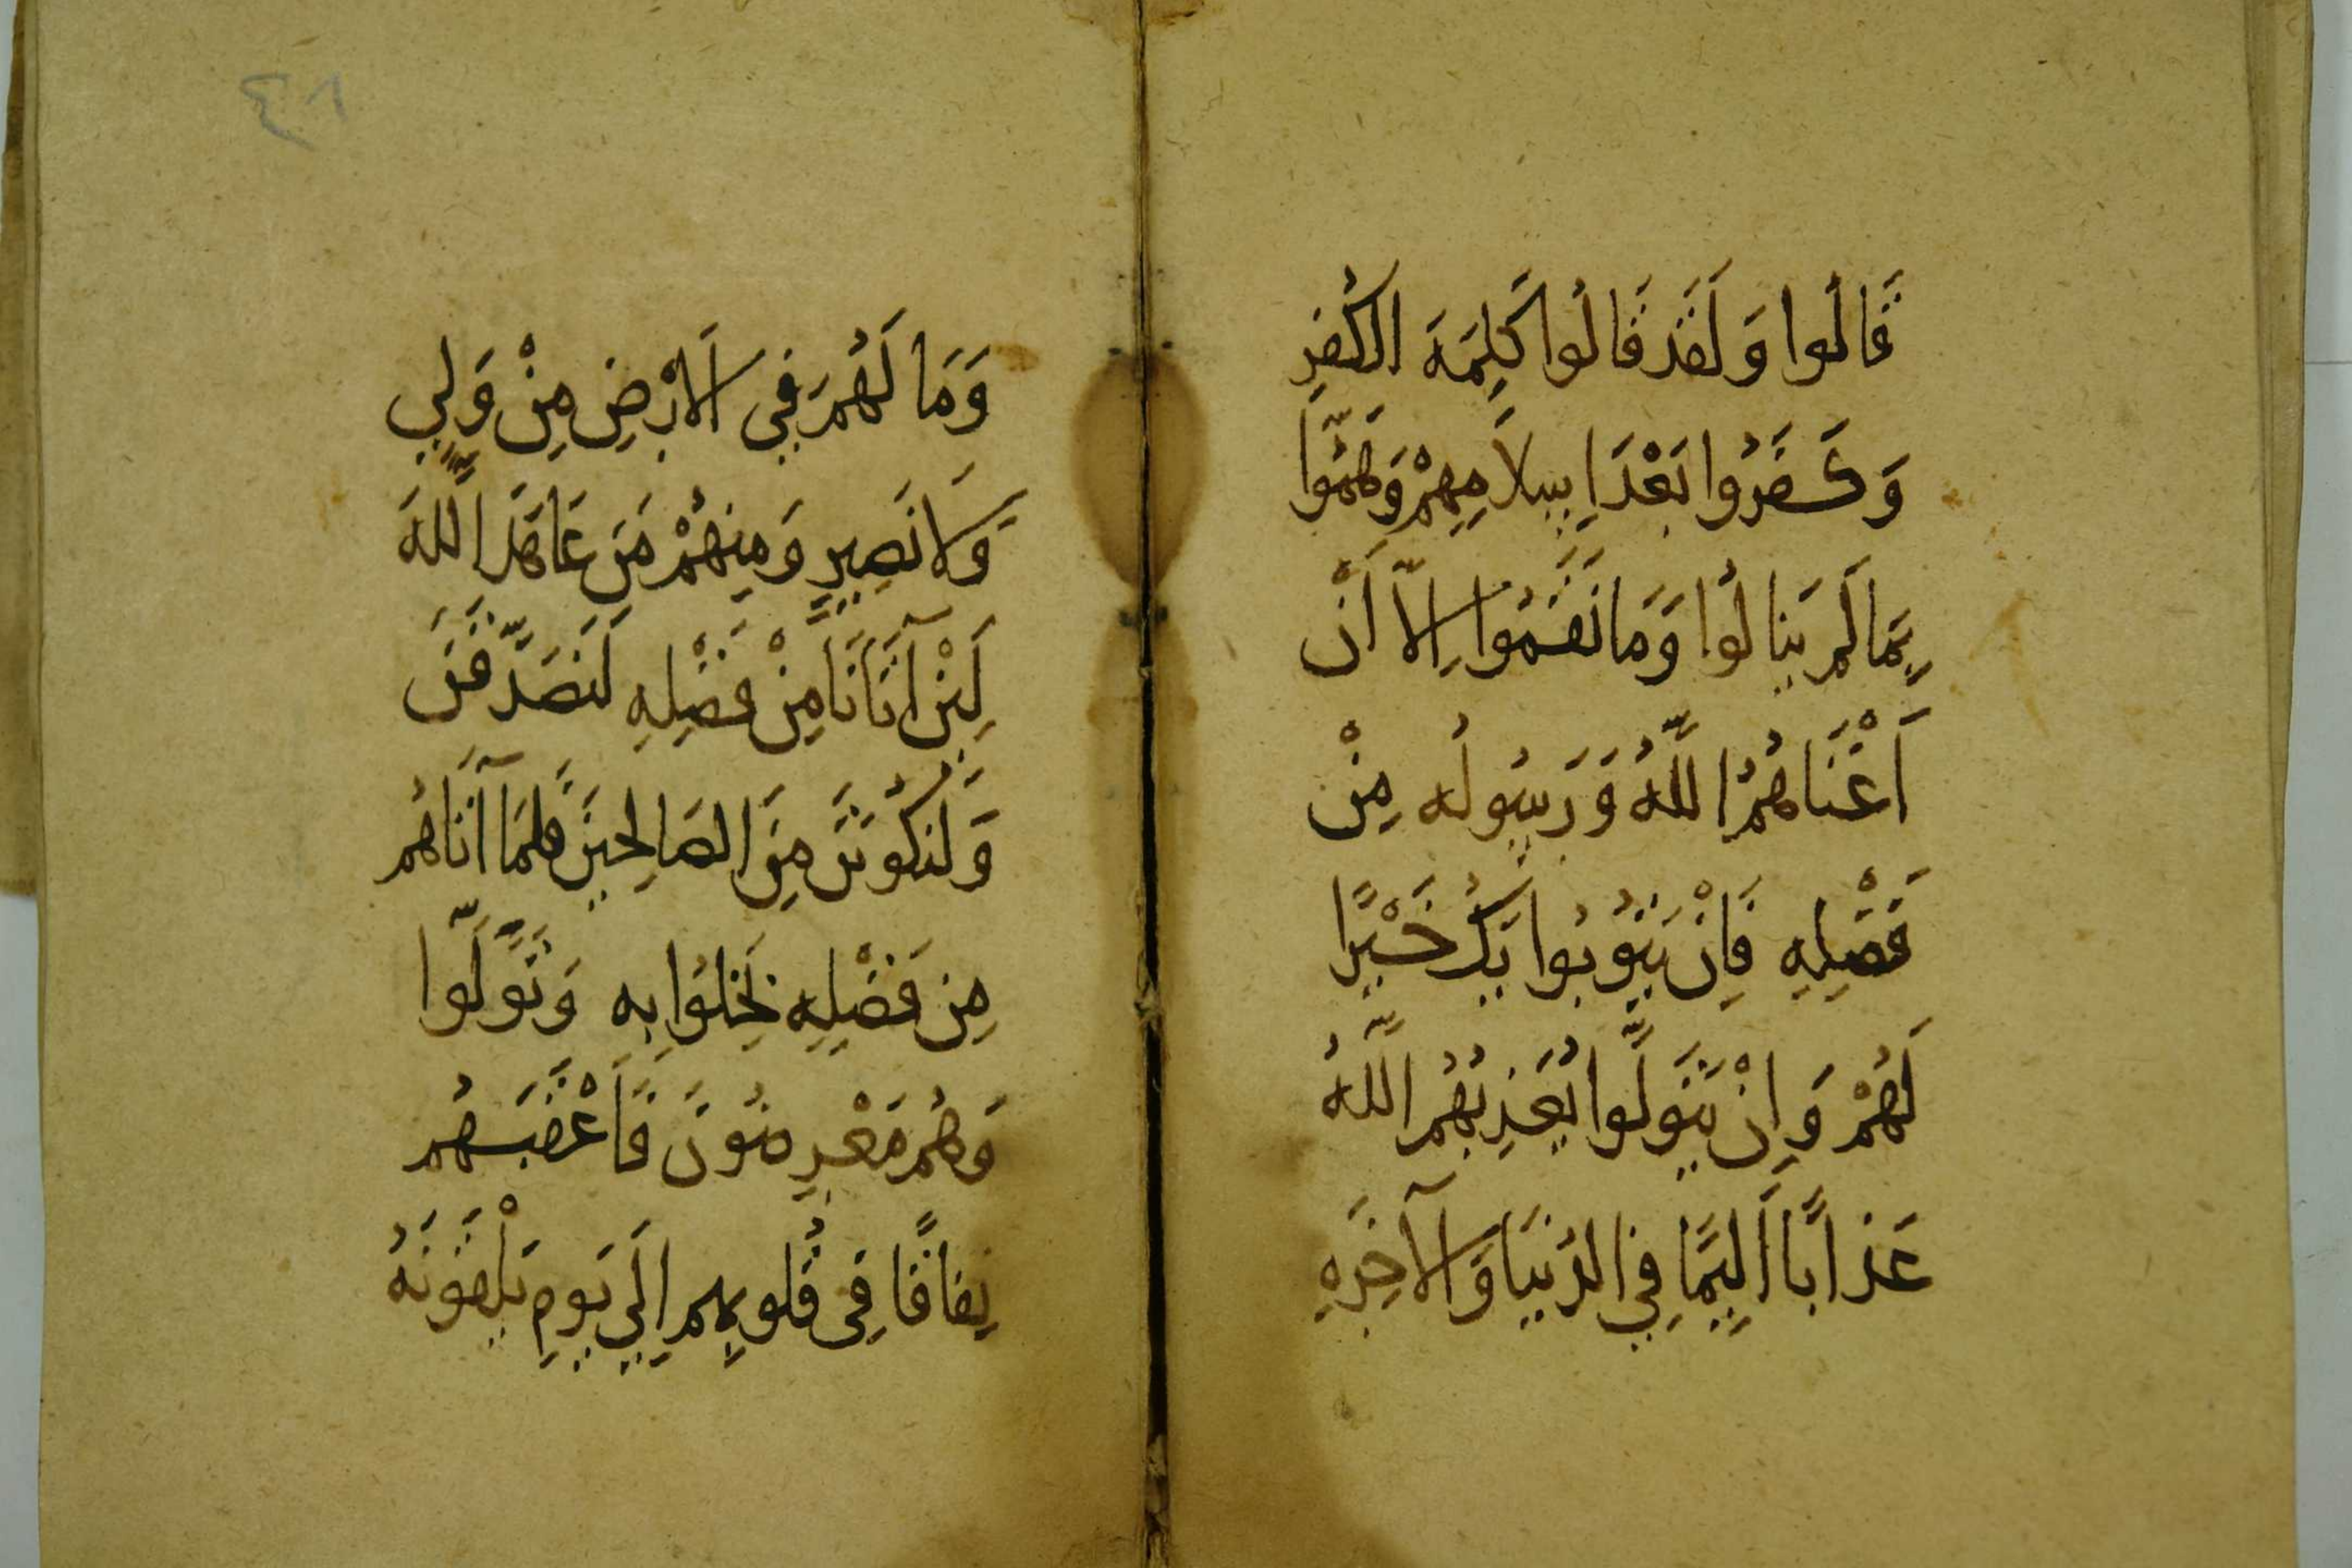 قَالُوا وَلَقَد قَالُوا كَلِمَةَ الكُفرِ
وَكَفَرُوا بَعْدَ اِسلَامِهِمْ وَهَمُّوا
بِمَا لَم يَنَالُوا وَمَا نَقَمُوا اِلَّا أَنْ
أَغْنَاهُمُ اللَّهُ وَرَسُولُه مِنْ
فَضْلِهِ فَاِنْ يَتُوبُوا يَكُ خَيْرًا
لَهُمْ وَاِنْ يَتَوَلَّوا يُعَذِبهُمُ اللَّهُ
عَذاَبًا أَلِيمًا فِي الدُنيَا وَالآخِرَةِ
وَمَا لَهُم فِي الاَرْضِ مِنْ وَلِيٍ
وَلَا نَصِيرٍ وَمِنهُمْ مَن عَاهَدَ اللَّهَ
لَئِنْ آتَانَا مِنْ فَضْلِهِ لَنَصَدَّقَنَ
وَلَنَكُونَنَ مِنَ الصَالِحِينَ فَلمَا آتَاهُم
مِن فَضْلِهِ بَخِلُوا بِهِ وَتَوَلَّوا
وَهُم مَعْرِضُونَ فَأَعْقَبَهُم
نِفاقًا فِي قُلوبِهِم اِلَى يَومِ يَلْقَونَهُ